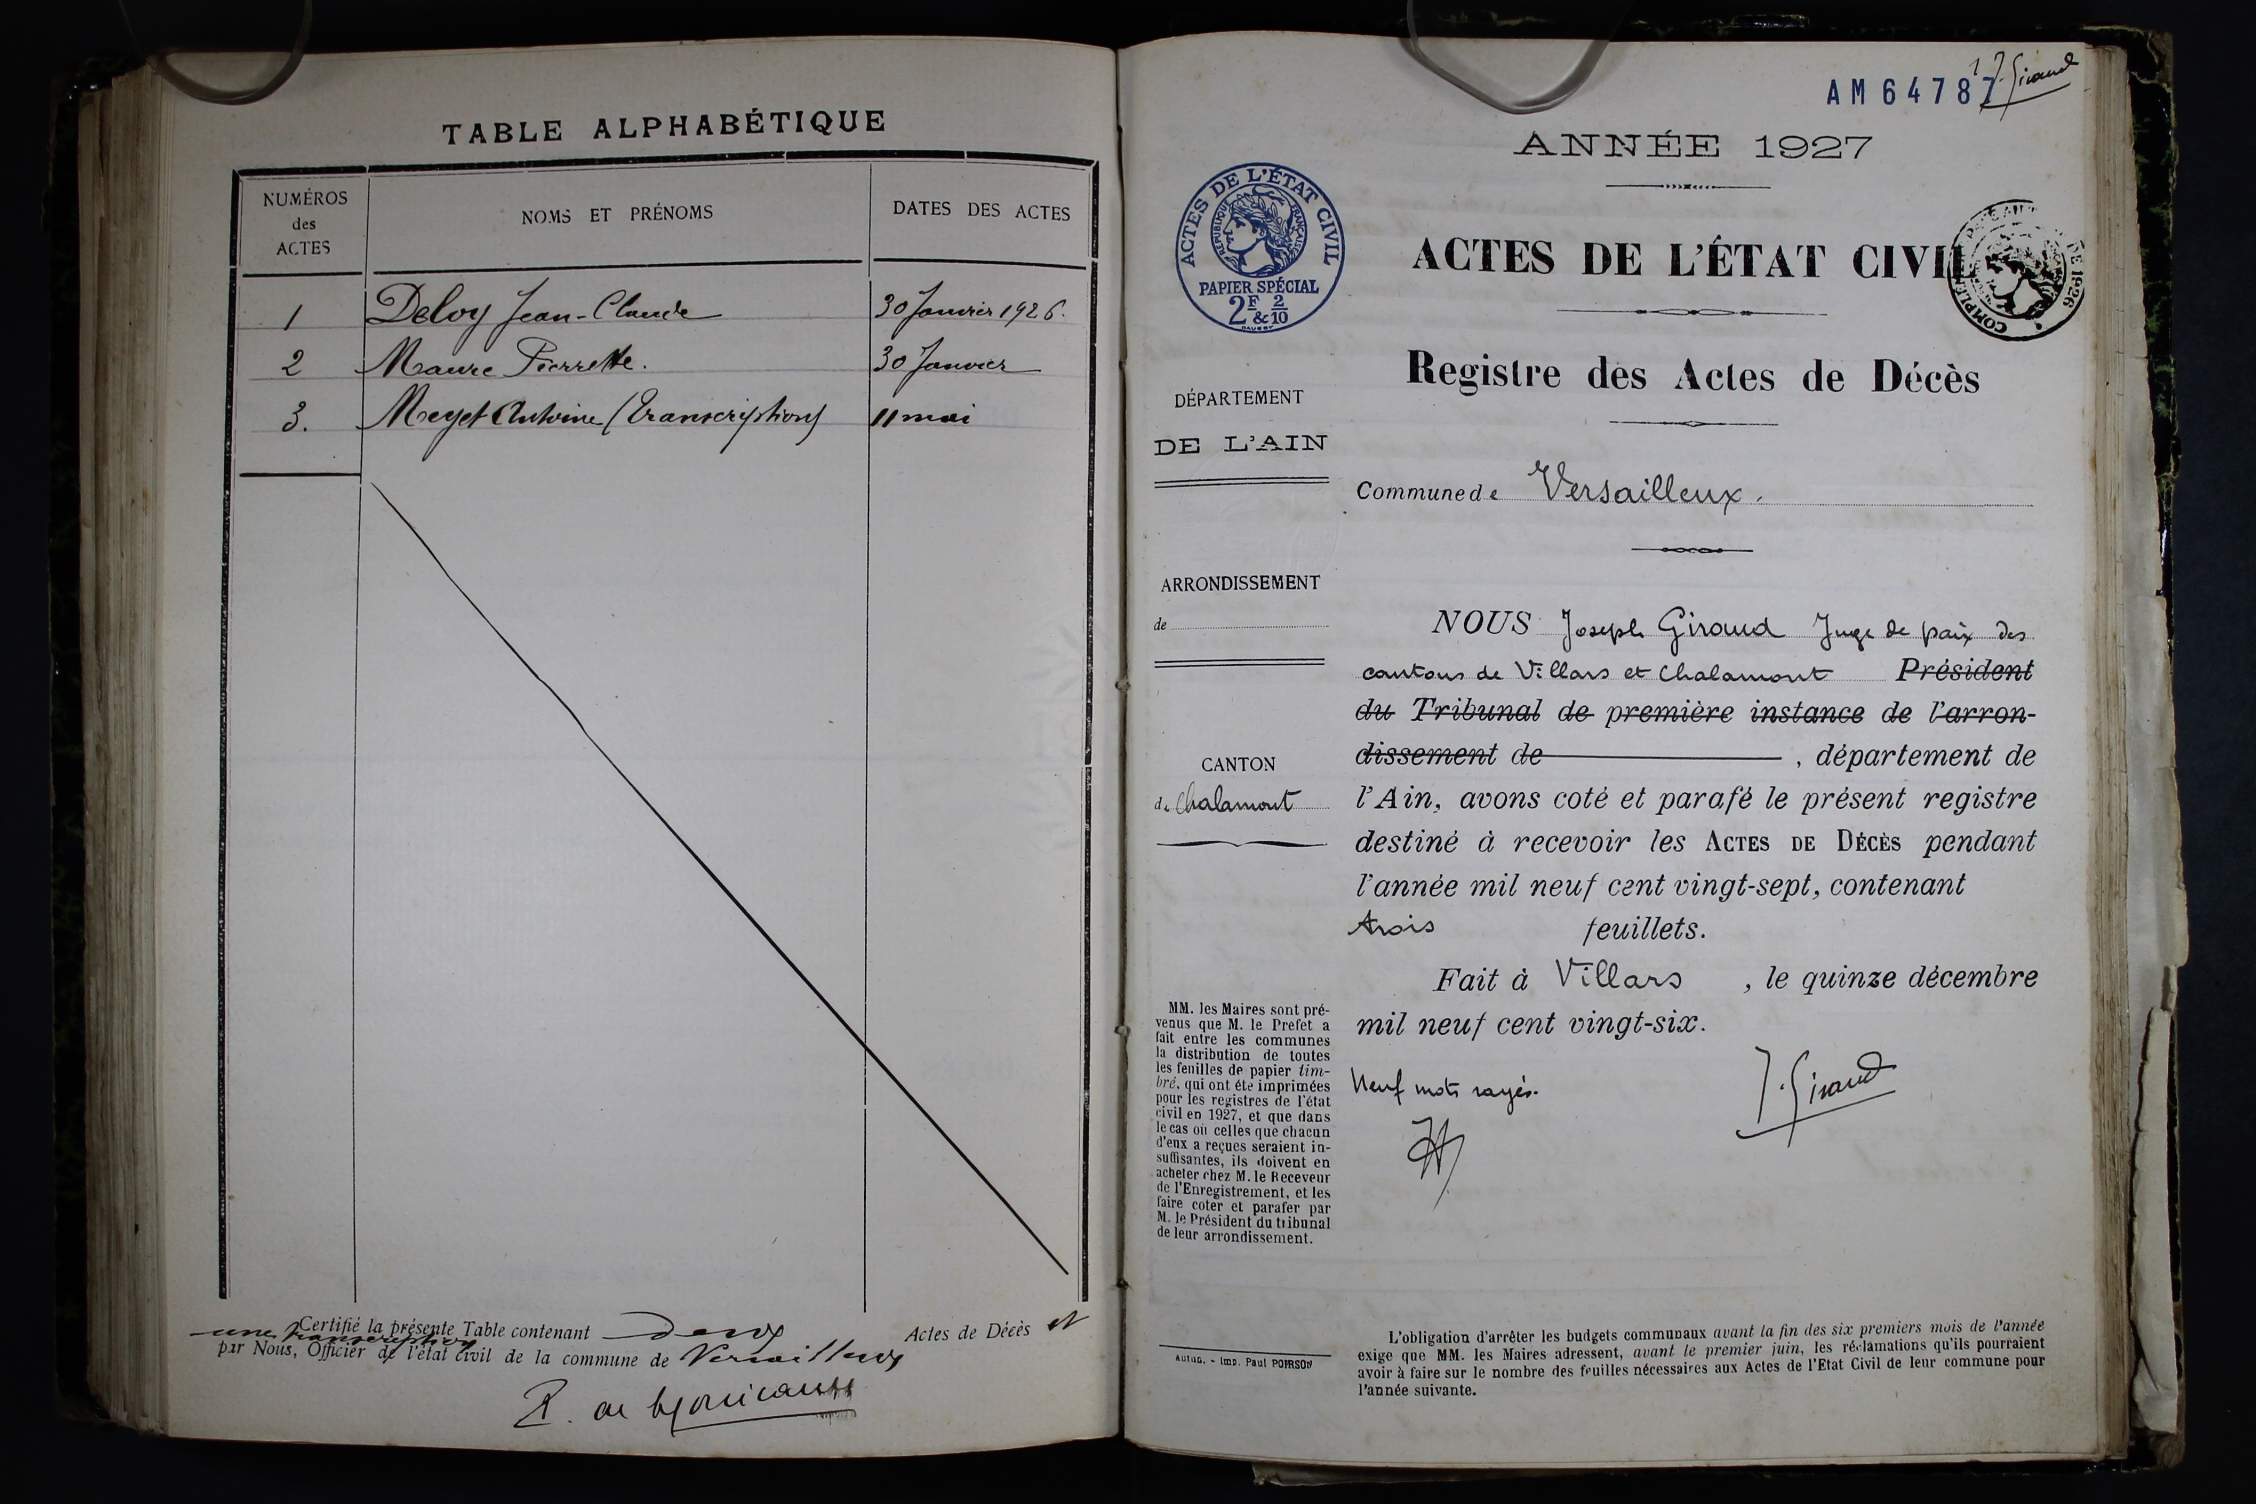 TABLE ALPHABÉTIQUE
NUMÉROS
des
ACTES
NOMS ET PRÉNOMS
DATES DES ACTES
1 Deloy Jean-Claude 30 Janvier 1926.
2 Maure Pierrette. 30 Janvier
3. Meyet Antoine (Transcription) 11 mai
Certifié la présente Table contenant deux Actes de Décès et
une transcription
par Nous, Officier de l'état civil de la commune de Versailleux
AM 64787
1 J. Giraud
ANNÉE 1927
ACTES DE L'ÉTAT CIVIL
RÉPUBLIQUE FRANÇAISE
PAPIER SPÉCIAL
2F & 2/10
ACTES DE L'ÉTAT CIVIL
DE 1926
Registre des Actes de Décès
DÉPARTEMENT
DE L'AIN
Commune de Versailleux.
ARRONDISSEMENT
de
CANTON
de Chalamont
NOUS Joseph Giraud Juge de paix des
cantons de Villars et Chalamont Président
du Tribunal de première instance de l'arron-
dissement de , département de
l'Ain, avons coté et parafé le présent registre
destiné à recevoir les ACTES DE DÉCÈS pendant
l'année mil neuf cent vingt-sept, contenant
trois feuillets.
Fait à Villars , le quinze décembre
mil neuf cent vingt-six.
Neuf mots rayés.
J. Giraud
MM. les Maires sont pré-
venus que M. le Prefet a
fait entre les communes
la distribution de toutes
les feuilles de papier tim-
bré, qui ont été imprimées
pour les registres de l'état
civil en 1927, et que dans
le cas où celles que chacun
d'eux a reçues seraient in-
suffisantes, ils doivent en
acheter chez M. le Receveur
de l'Enregistrement, et les
faire coter et parafer par
M. le Président du tribunal
de leur arrondissement.
Autun. - Imp. Paul POIRSON
L'obligation d'arrêter les budgets communaux avant la fin des six premiers mois de l'année
exige que MM. les Maires adressent, avant le premier juin, les réclamations qu'ils pourraient
avoir à faire sur le nombre des feuilles nécessaires aux Actes de l'Etat Civil de leur commune pour
l'année suivante.